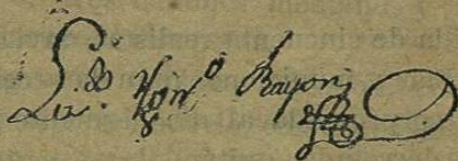 Lic. Ygn.º Rayon